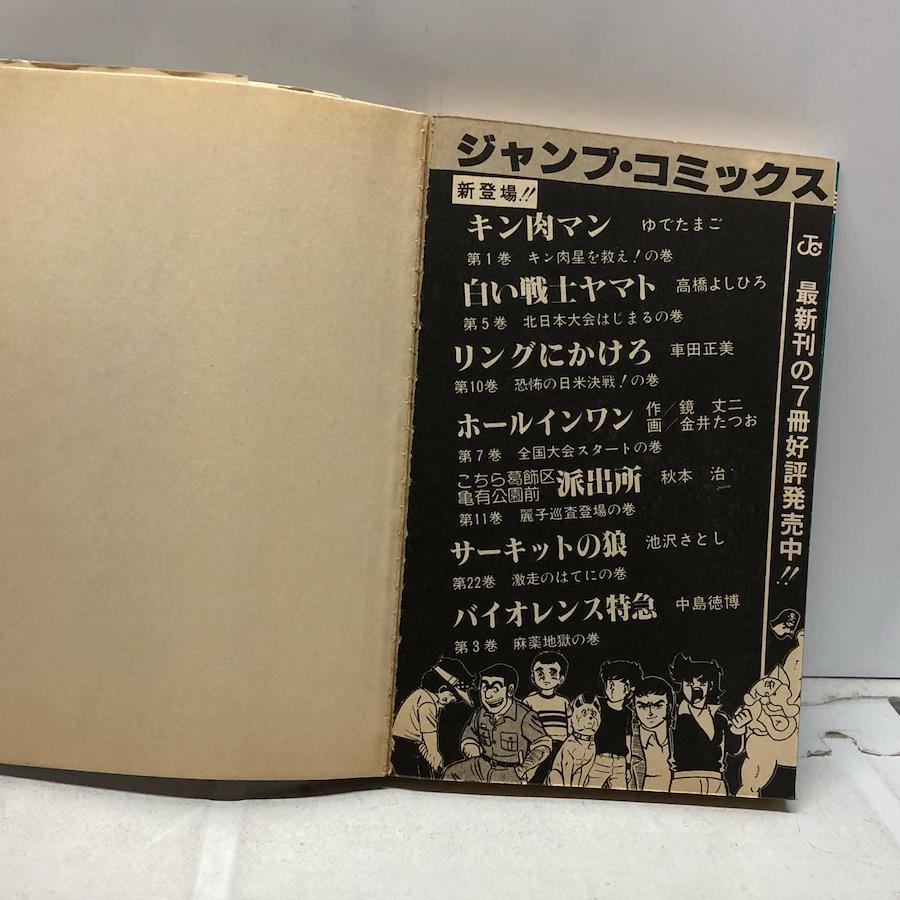 ジャンプ・コミックス
新登場!!
キン肉マン ゆでたまご
第1巻 キン肉星を救え!の巻
白い戦士ヤマト 高橋よしひろ
第5巻 北日本大会はじまるの巻
リングにかけろ 車田正美
第10巻 恐怖の日米決戦!の巻
ホールインワン 作/鏡 丈二
画/金井たつお
第7巻 全国大会スタートの巻
こちら葛飾区
亀有公園前 派出所 秋本 治
第11巻 麗子巡査登場の巻
サーキットの狼 池沢さとし
第22巻 激走のはてにの巻
バイオレンス特急 中島徳博
第3巻 麻薬地獄の巻
JC
最新刊の7冊好評発売中!!
肉